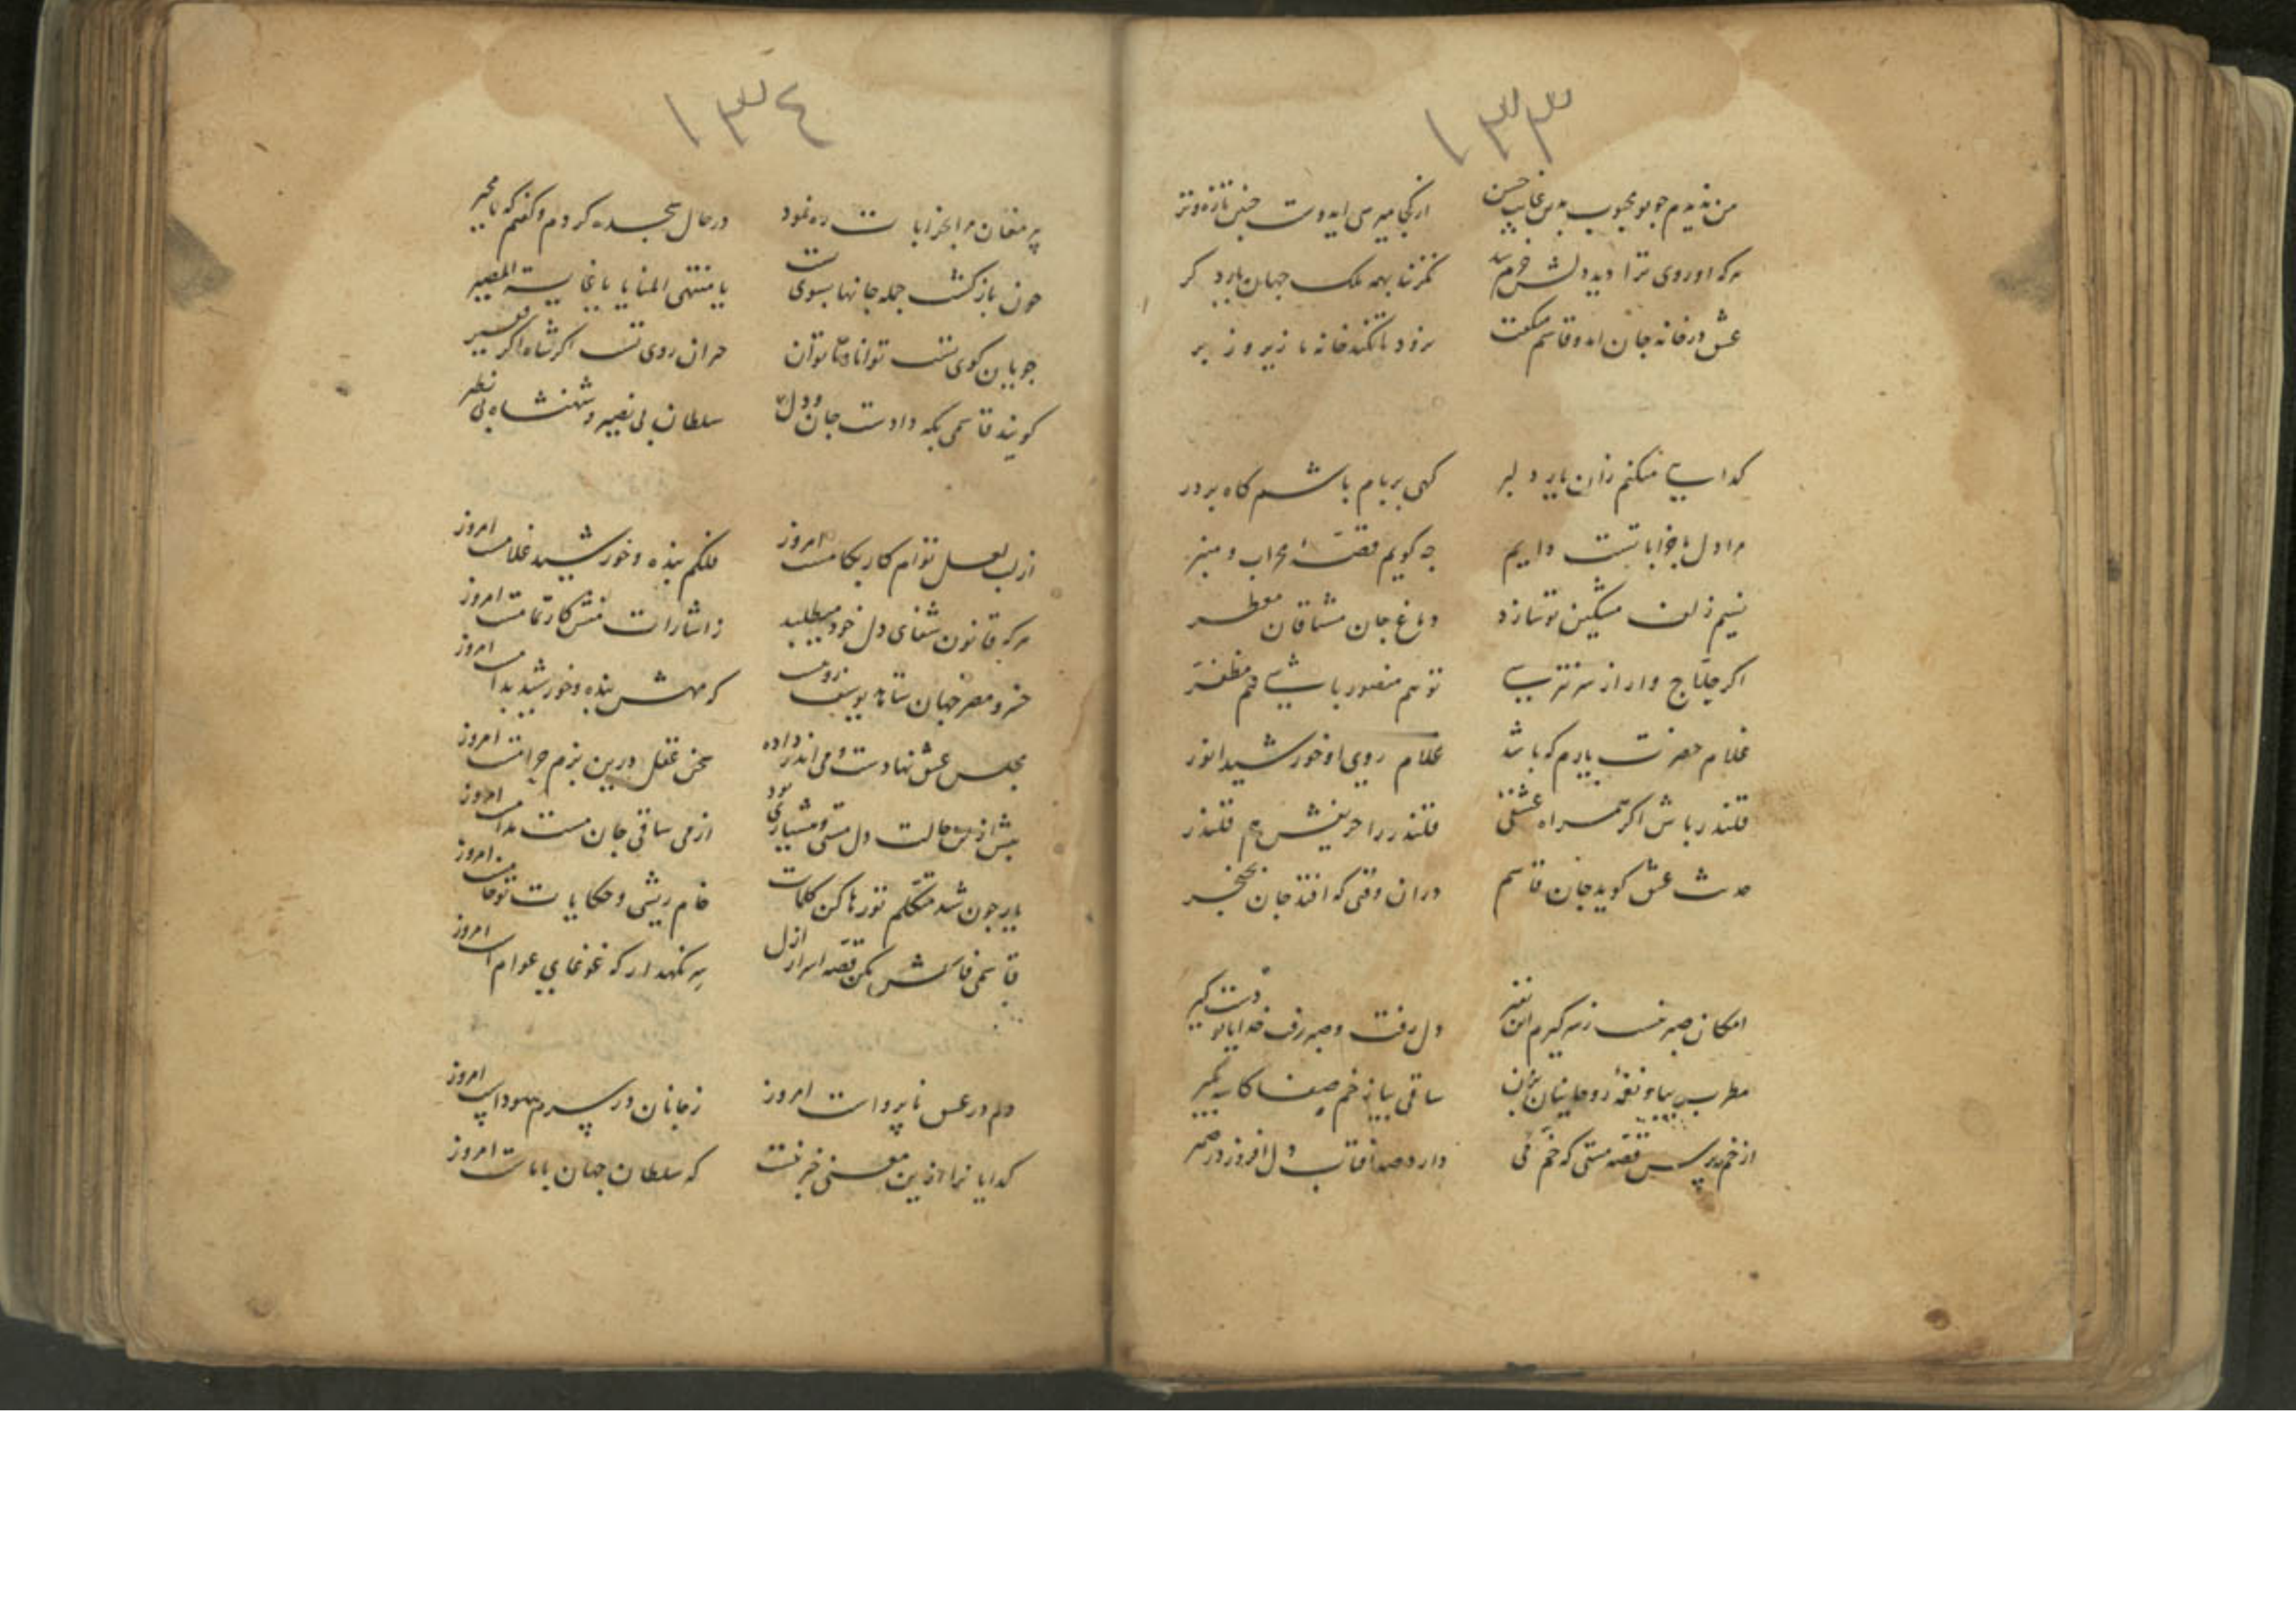 ١٣٣
من ندیدم جو تو محبوب بدین غایت حسن
از کجا میرسی ای دوست چنین تازه و تر
هرکه او روی ترا دید دلش خرم شد
عشق در خانه جان امد و قاسم میکفت
کدایی میکنم زان یار دلبر
کهی بر بام باشم کاه بر در
مرا دل با خراباتست داریم
جه کویم قصهٔ محراب و منبر
نسیم زلف مشکین تو سازد
دماغ جان مشتاقان معطر
اکر حلاج وار از سر نترسی
تو هم منصور باشی هم مظفر
غلام حضرت یارم که باشد
غلام روی او خورشید انور
قلندر باش اکر همراه عشقی
قلندر را حریفش هم قلندر
حدیث عشق کوید جان قاسم
دران وقتی که افتد جان بخنجر
امکان صبر نیست ز سر کیرم این نفیر
دل رفت و صبر رفت خدایا تو دست کیر
مطرب بیا و نغمهٔ روحانیان بزن
ساقی بیا ز خم صفا کاسه بکیر
از خم مپرس قصه مستی که خم می
دارد صد آفتاب دل افروز در ضمیر
١٣٤
پیر مغان مرا بخرابات ره نمود
در حال سجده کردم و کفتم که یا مجیر
چون بازکشت جمله جانها بسوی تست
یا منتهی المنایا یا غایة المصیر
جویان کوی تست توانا و ناتوان
حیران روی تست اکر شاه اکر فقیر
کویند قاسمی بکه دادست جان و دل
سلطان بی نصیر و شهنشاه بی نظیر
از لب لعل توام کار بکامست امروز
فلکم بنده و خورشید غلامست امروز
هرکه قانون شفای دل خود میطلبد
ز اشارات منش کار تمامست امروز
خسرو مصر جهان شاهد یوسف رویست
که مهش بنده و خورشید
مجلس عشق نهادست و می اندر داده
سخن عقل درین بزم حرامست امروز
پیش ازین حالت دل مستی و هشیاری بود
از می ساقی جان مست مدامست امروز
یار جون شد متکلم تو رها کن کلمات
خام ریشی و حکایات تو خامست امروز
قاسمی فاش مکن قصه اسرار ازل
سر نکهدار که غوغایی عوامست امروز
دلم در عشق ناپرواست امروز
ز جانان در سرم سوداست امروز
کدایانرا ازین معنی خبر نیست
که سلطان جهان با ماست امروز